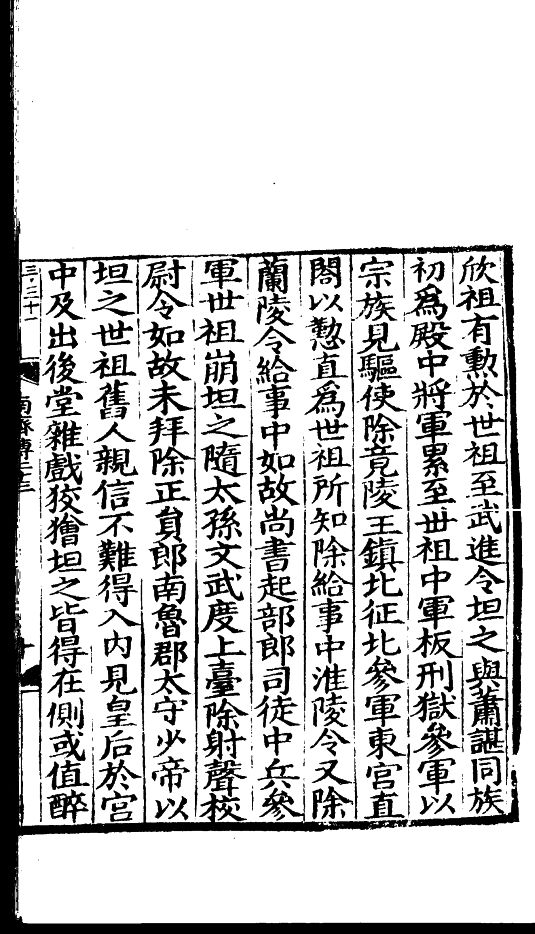 欣祖有勲於世祖至武進令坦之與蕭諶同族
初爲殿中將軍累至世祖中軍板刑獄參軍以
宗族見驅使除竟陵王鎮北征北參軍東宮直
閤以懃直爲世祖所知除給事中淮陵令又除
蘭陵令給事中如故尚書起部郎司徒中兵參
軍世祖崩坦之隨太孫文武度上臺除射聲校
尉令如故未拜除正貟郎南魯郡太守少帝以
坦之世祖舊人親信不難得入内見皇后於宮
中及出後堂雜戲狡獪坦之皆得在側或值醉